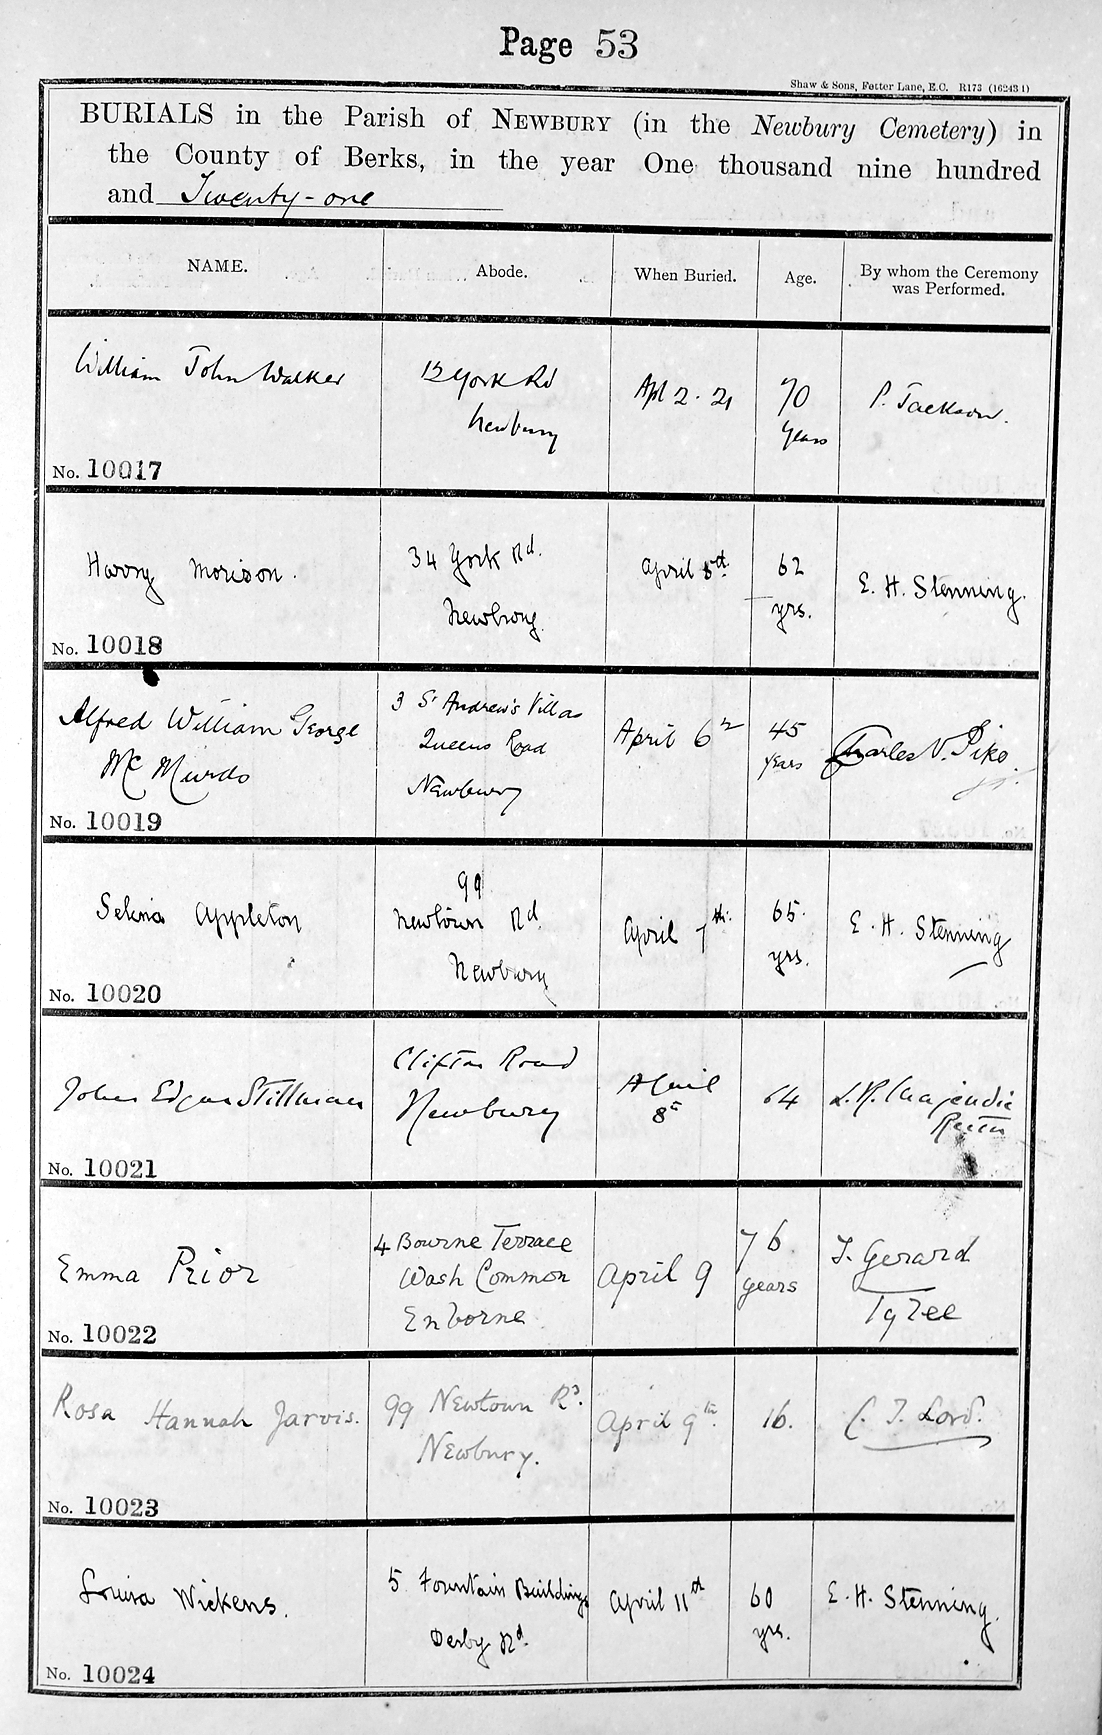 Page 53
Shaw & Sons, Fetter Lane, E.C. R173 (16243 1)
BURIALS in the Parish of NEWBURY (in the Newbury Cemetery) in
the County of Berks, in the year One thousand nine hundred
and Twenty-one
NAME. Abode. When Buried. Age. By whom the Ceremony
was Performed.
William John Walker 12 York Rd Apl 2. 21 70 P. Jackson.
Newbury years
No. 10017
Harry Morison. 34 York Rd. April 5th. 62 E. H. Stenning.
Newbury yrs.
No. 10018
Alfred William George 3 St Andrew's Villas April 6th 45 Charles V. Pike
Mc Murdo Queens Road years
Newbury
No. 10019
Selina Appleton 99 April 7th. 65. E. H. Stenning
Newtown Rd. yrs.
Newbury
No. 10020
John Edgar Stillman Clifton Road April 64 L. R. Majendie
Newbury 8th Rector
No. 10021
Emma Prior 4 Bourne Terrace April 9 76 T. Gerard
Wash Common years Tyzee
Enborne
No. 10022
Rosa Hannah Jarvis. 99 Newtown Rd. April 9th. 16. C. T. Lord.
Newbury.
No. 10023
Louisa Wickens. 5 Fountain Buildings April 11th 60 E. H. Stenning.
Derby Rd. yrs.
No. 10024